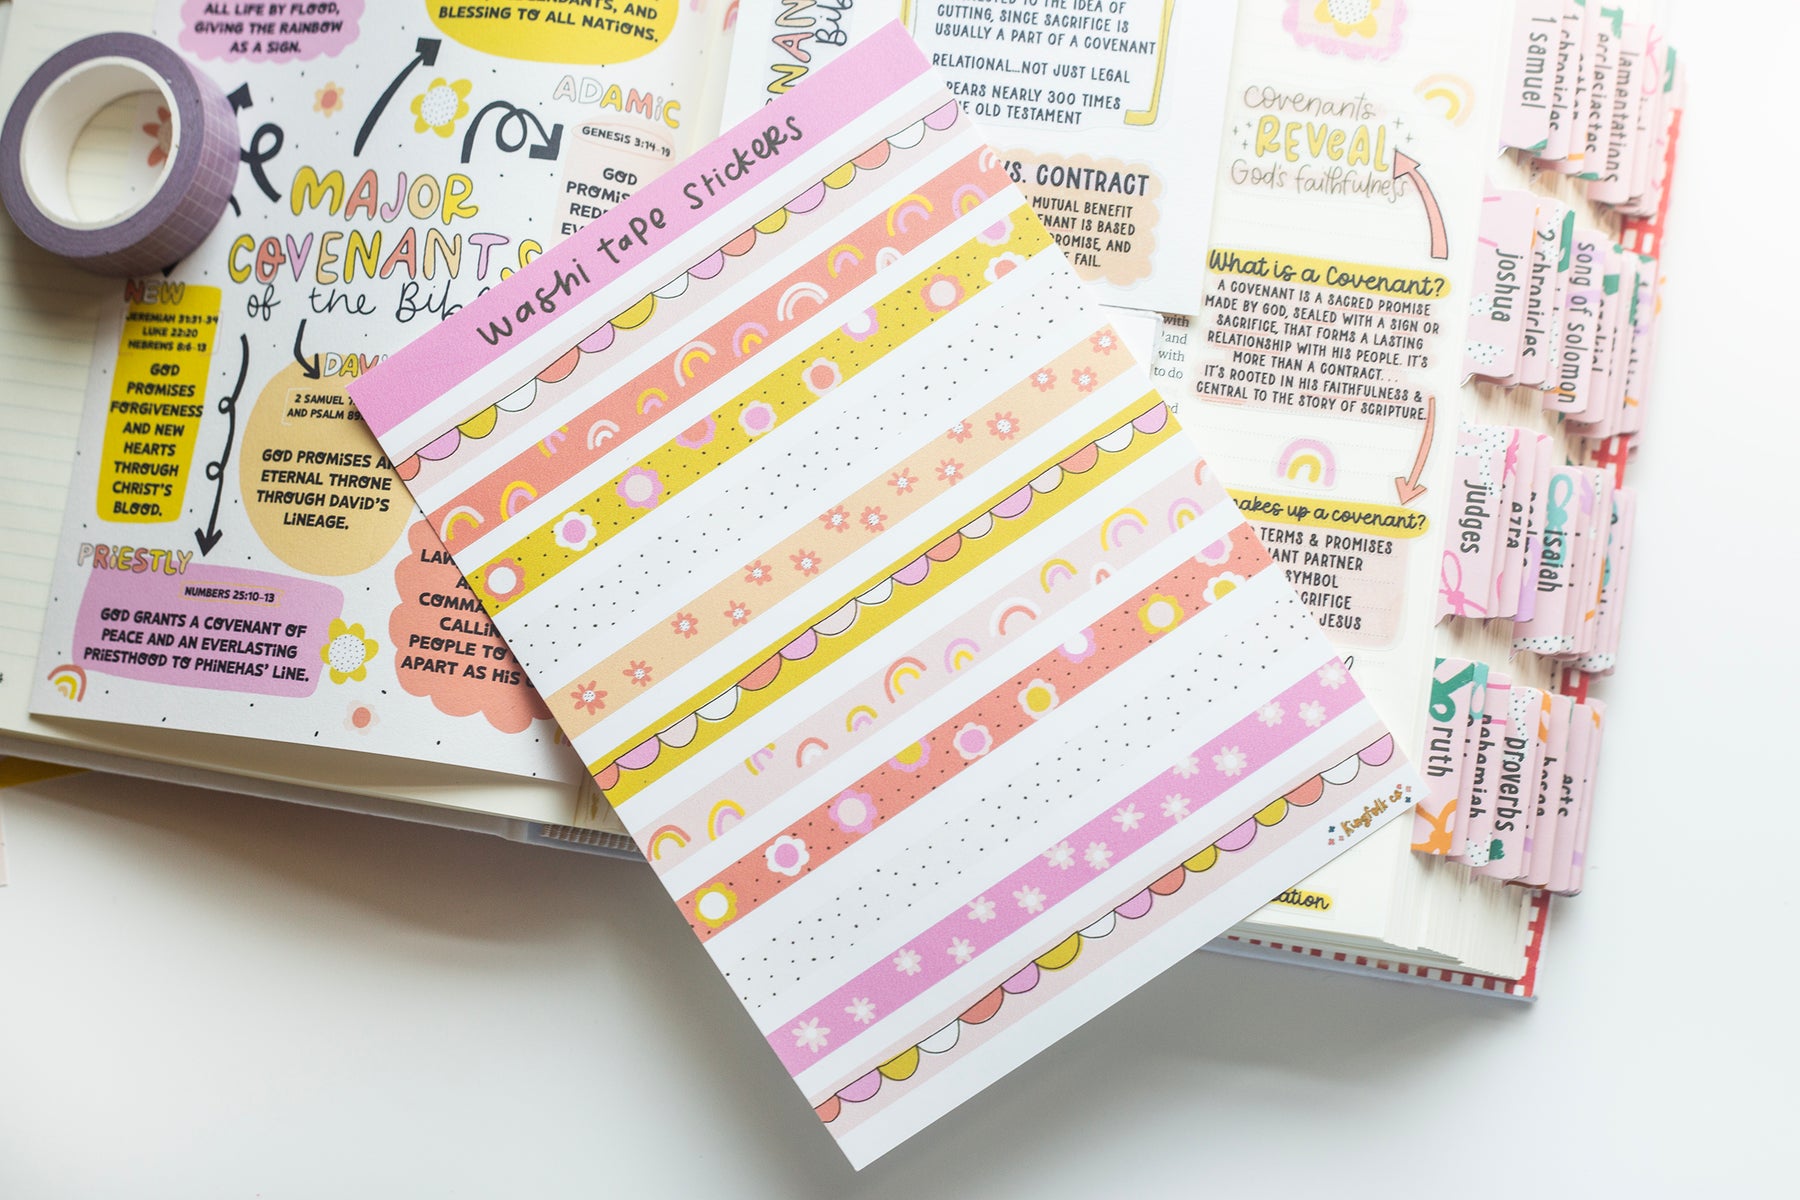 ALL LIFE BY FLOOD,
GIVING THE RAINBOW
AS A SIGN.
AND
BLESSING TO ALL NATIONS.
ADAMIC
GENESIS 3:14-19
GOD
MAJOR
COVENANTS
of the
NEW
JEREMIAH 31:31-34
LUKE 22:20
HEBREWS 8:6-13
GOD
PROMISES
FORGIVENESS
AND NEW
HEARTS
THROUGH
CHRIST'S
BLOOD.
2 SAMUEL
AND PSALM 89
GOD PROMISES
ETERNAL THRONE
THROUGH DAVID'S
LINEAGE.
PRIESTLY
NUMBERS 25:10-13
GOD GRANTS A COVENANT OF
PEACE AND AN EVERLASTING
PRIESTHOOD TO PHINEHAS' LINE.
PEOPLE TO
APART AS HIS
washi tape stickers
Kingfolk co
TO THE IDEA OF
CUTTING, SINCE SACRIFICE IS
USUALLY A PART OF A COVENANT
RELATIONAL...NOT JUST LEGAL
NEARLY 300 TIMES
OLD TESTAMENT
VS. CONTRACT
MUTUAL BENEFIT
IS BASED
AND
FAIL.
with
and
with
to do
covenants
REVEAL
God's faithfulness
What is a Covenant?
A COVENANT IS A SACRED PROMISE
MADE BY GOD, SEALED WITH A SIGN OR
SACRIFICE, THAT FORMS A LASTING
RELATIONSHIP WITH HIS PEOPLE. IT'S
MORE THAN A CONTRACT...
IT'S ROOTED IN HIS FAITHFULNESS &
CENTRAL TO THE STORY OF SCRIPTURE.
makes up a covenant?
TERMS & PROMISES
PARTNER
SYMBOL
JESUS
1 samuel
1 chronicles
ecclesiastes
lamentations
joshua
2 chronicles
song of solomon
judges
ezra
isaiah
ruth
nehemiah
proverbs
hosea
acts